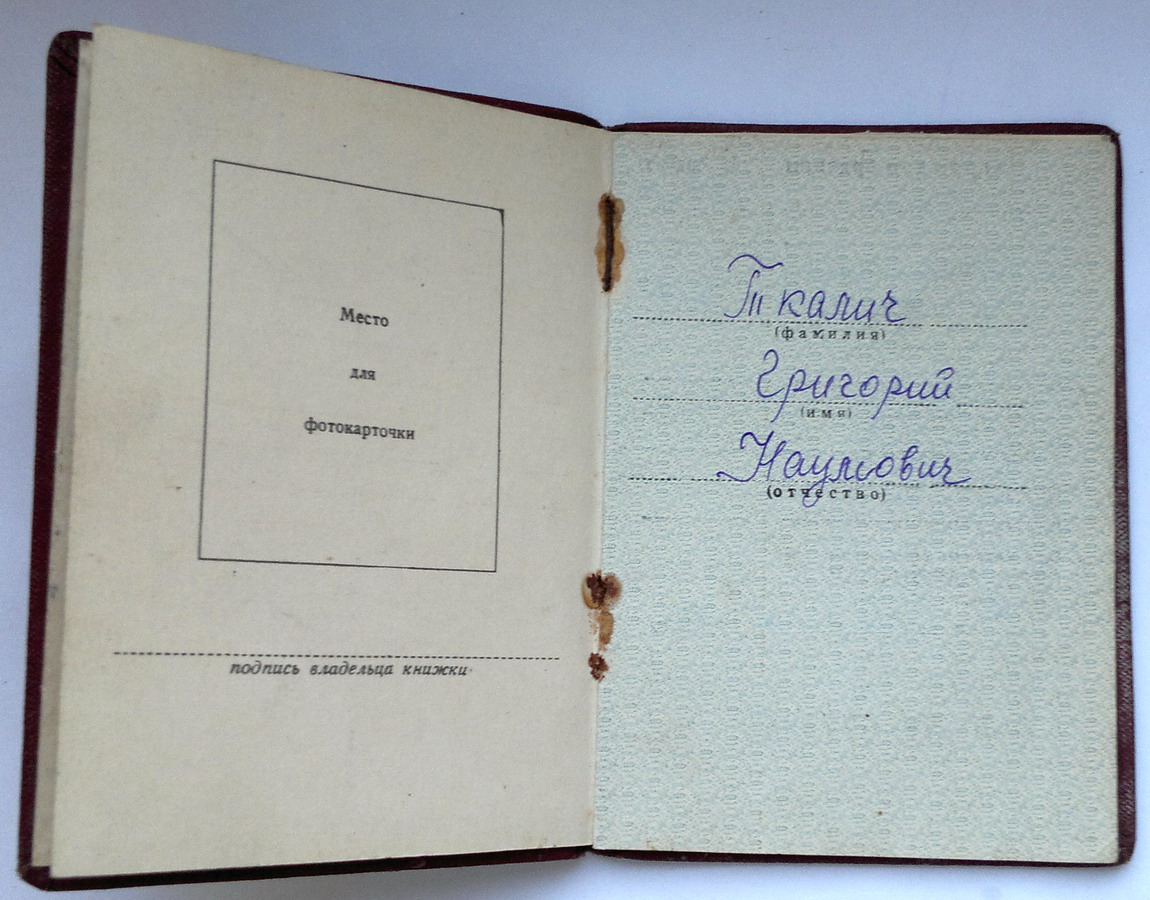 Место
для
фотокарточки
подпись владельца книжки
Ткалич
(фамилия)
Григорий
(имя)
Наумович
(отчество)